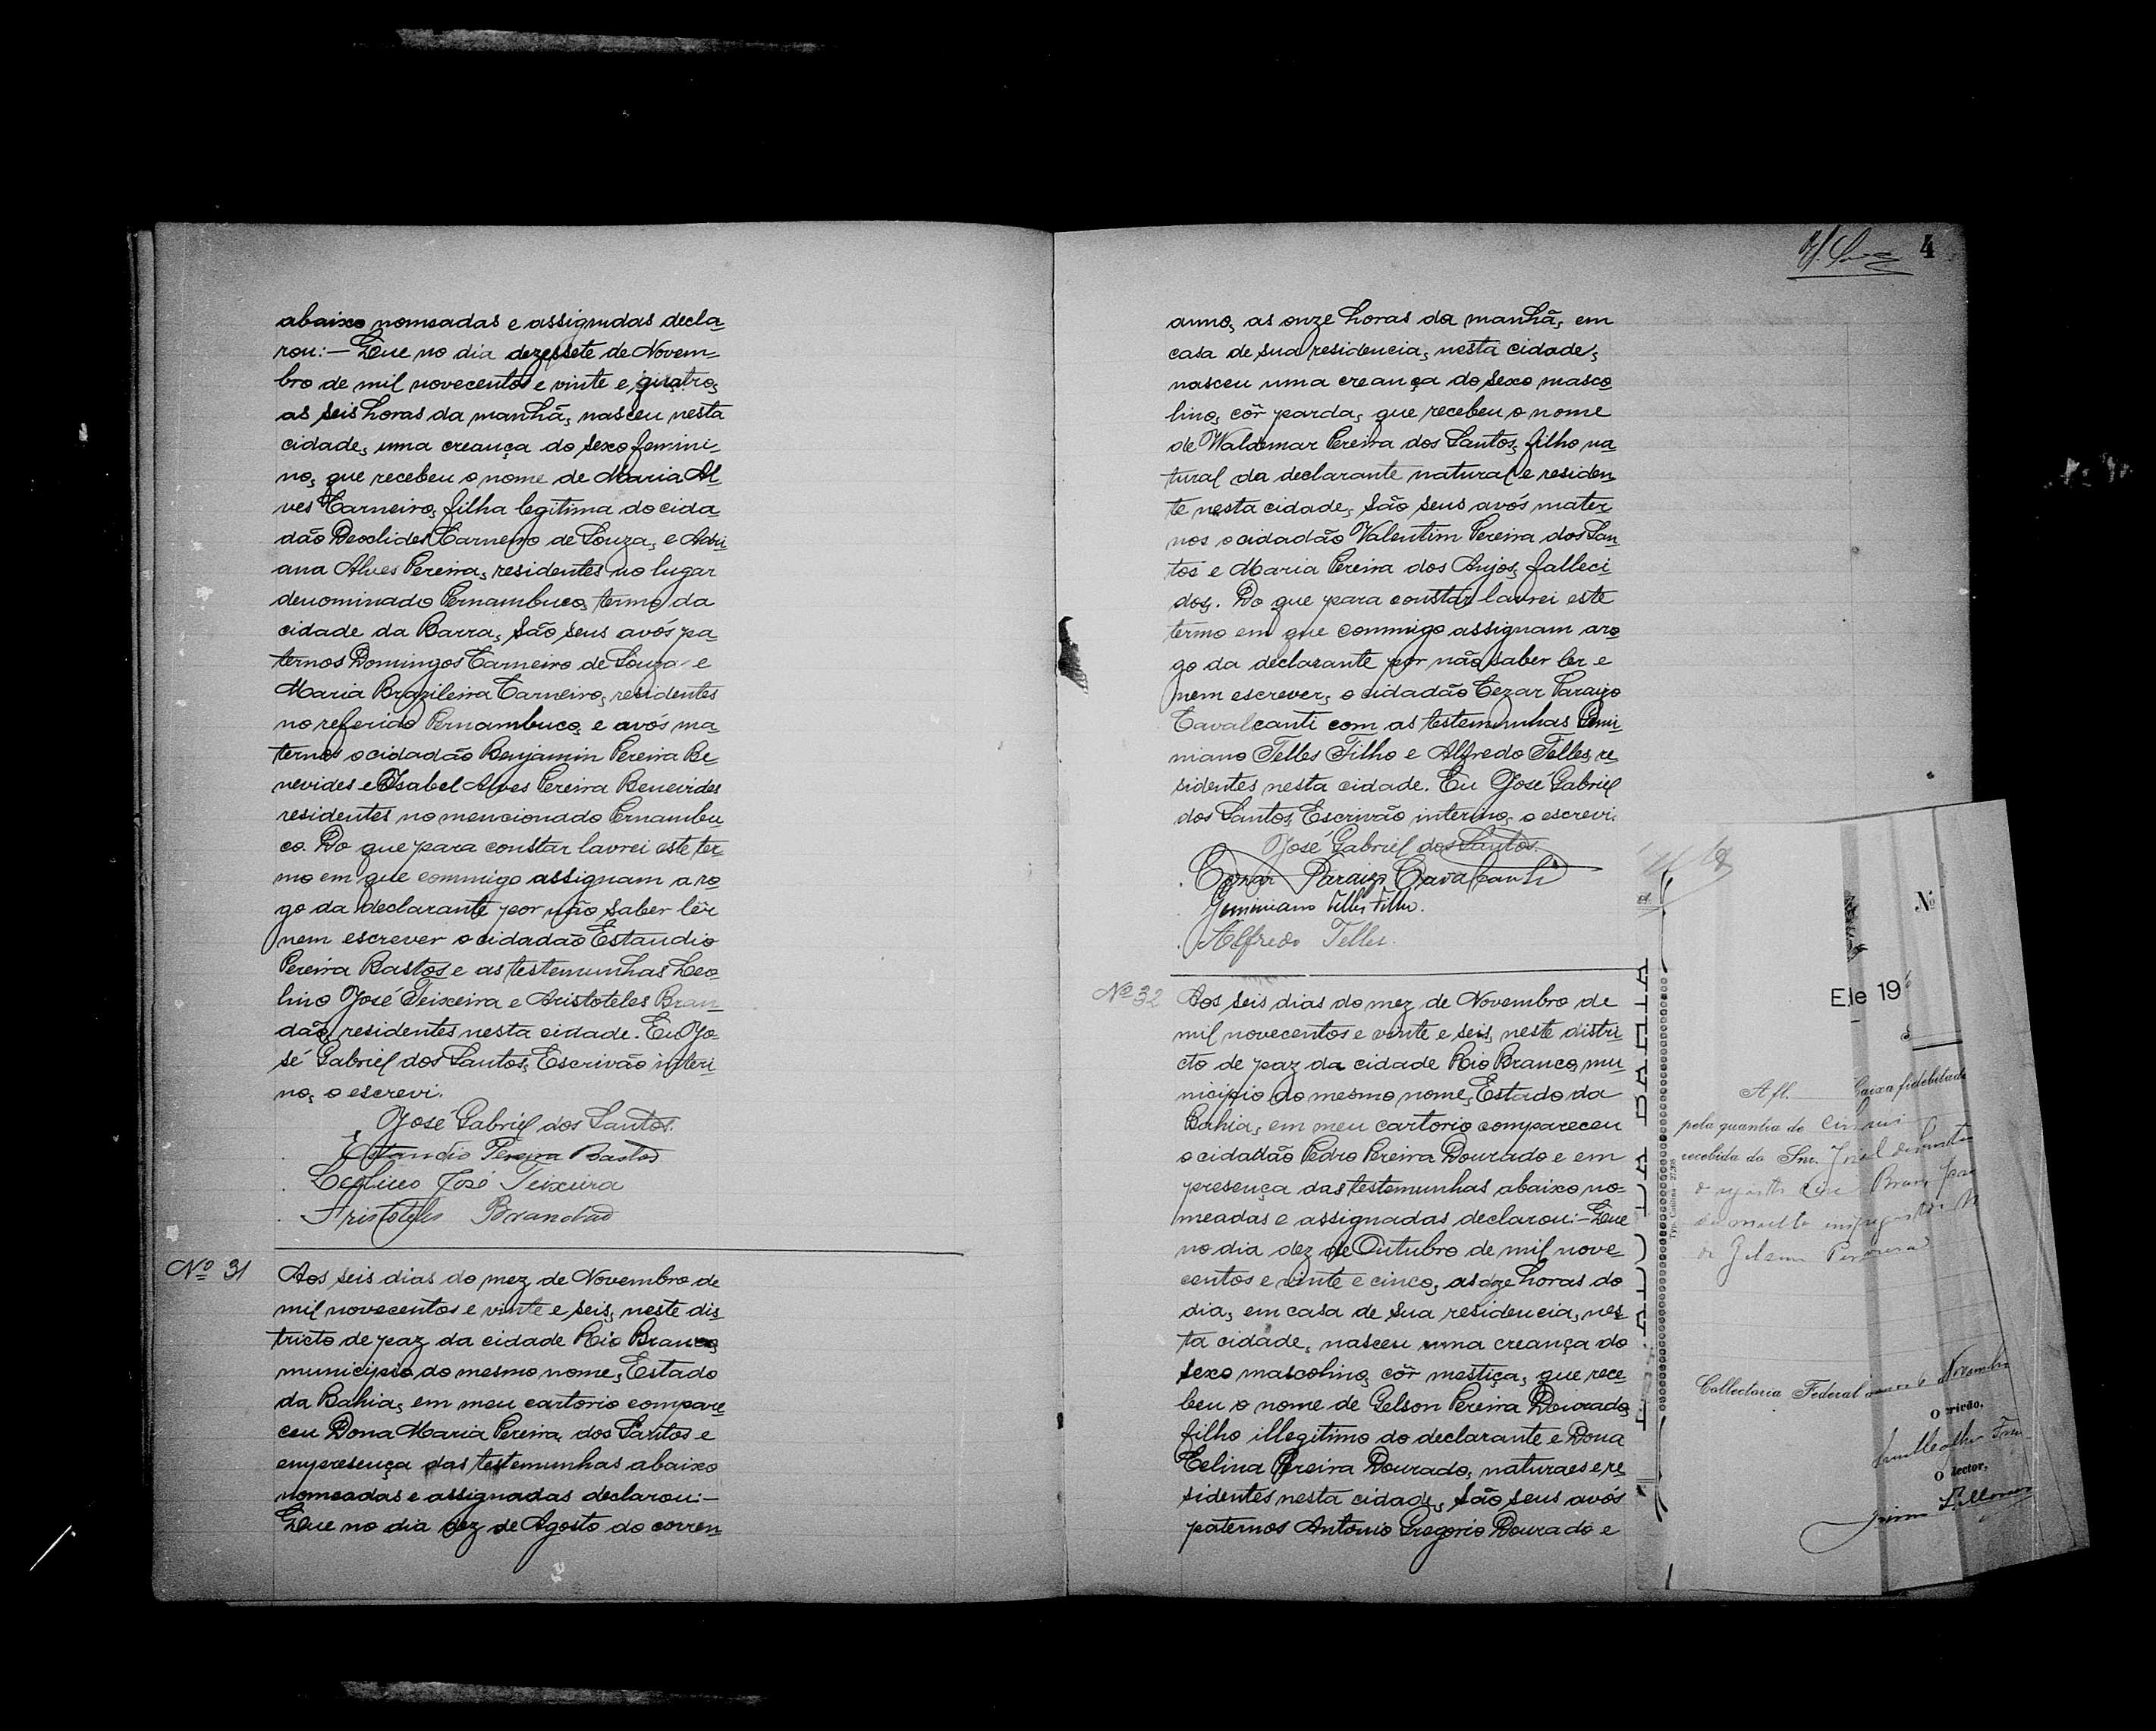 abaixo nomeadas e assignadas decla-
rou:— Que no dia dezessete de Novem-
bro de mil novecentos e vinte e quatro,
as seis horas da manhã, nasceu nesta
cidade, uma creança do sexo femini-
no, que recebeu o nome de Maria Al-
ves Carneiro, filha legitima do cida-
dão Deoclides Carneiro de Souza, e Adri-
ana Alves Pereira, residentes no lugar
denominado Pernambuco, termo da
cidade da Barra, são seus avós pa-
ternos Domingos Carneiro de Souza e
Maria Brazileira Carneiro, residentes
no referido Pernambuco, e avós ma-
ternos o cidadão Benjamin Pereira Be-
nevides e Isabel Alves Pereira Benevides
residentes no mencionado Pernambu-
co. Do que para constar lavrei este ter-
mo em que commigo assignam a ro-
go da declarante por não saber lêr
nem escrever o cidadão Estaudio
Pereira Bastos e as testemunhas Leo-
lino José Teixeira e Aristoteles Bran-
dão, residentes nesta cidade. Eu Jo-
sé Gabriel dos Santos, Escrivão interi-
no, o escrevi.
José Gabriel dos Santos.
Estaudio Pereira Bastos
Leolino José Teixeira
Aristoteles Brandão
Nº 31
Aos seis dias do mez de Novembro de
mil novecentos e vinte e seis, neste dis-
tricto de paz da cidade Rio Branco,
municipio do mesmo nome, Estado
da Bahia, em meu cartorio compare-
ceu Dona Maria Pereira dos Santos e
em presença das testemunhas abaixo
nomeadas e assignadas declarou:—
Que no dia dez de Agosto do corren-
4
anno, as onze horas da manhã, em
casa de sua residencia, nesta cidade,
nasceu uma creança do sexo masco-
lino, côr parda, que recebeu o nome
de Waldemar Pereira dos Santos, filho na-
tural da declarante natural e residen-
te nesta cidade, são seus avós mater-
nos o cidadão Valentim Pereira dos San-
tos e Maria Pereira dos Anjos, falleci-
dos. Do que para constar lavrei este
termo em que commigo assignam a ro-
go da declarante por não saber ler e
nem escrever, o cidadão Cezar Paraizo
Cavalcanti com as testemunhas Gemi-
niano Telles Filho e Alfredo Telles, re-
sidentes nesta cidade. Eu José Gabriel
dos Santos, Escrivão interino, o escrevi.
José Gabriel dos Santos.
Cezar Paraizo Cavalcanti
Geminiano Telles Filho.
Alfredo Telles.
Nº 32
Aos seis dias do mez de Novembro de
mil novecentos e vinte e seis, neste distri-
cto de paz da cidade Rio Branco, mu-
nicipio do mesmo nome, Estado da
Bahia, em meu cartorio compareceu
o cidadão Pedro Pereira Dourado e em
presença das testemunhas abaixo no-
meadas e assignadas declarou:— Que
no dia dez de Outubro de mil nove-
centos e vinte e cinco, as doze horas do
dia, em casa de sua residencia, nes-
ta cidade, nasceu uma creança do
sexo mascolino, côr mestiça, que rece-
beu o nome de Gelson Pereira Dourado,
filho illegitimo do declarante e Dona
Celina Pereira Dourado, naturaes e re-
sidentes nesta cidade, são seus avós
paternos Antonio Gregorio Dourado e
Nº
E de 19
A fl. Caixa fi debitado
pela quantia de
recebida do Snr.
Collectoria Federal Novembro